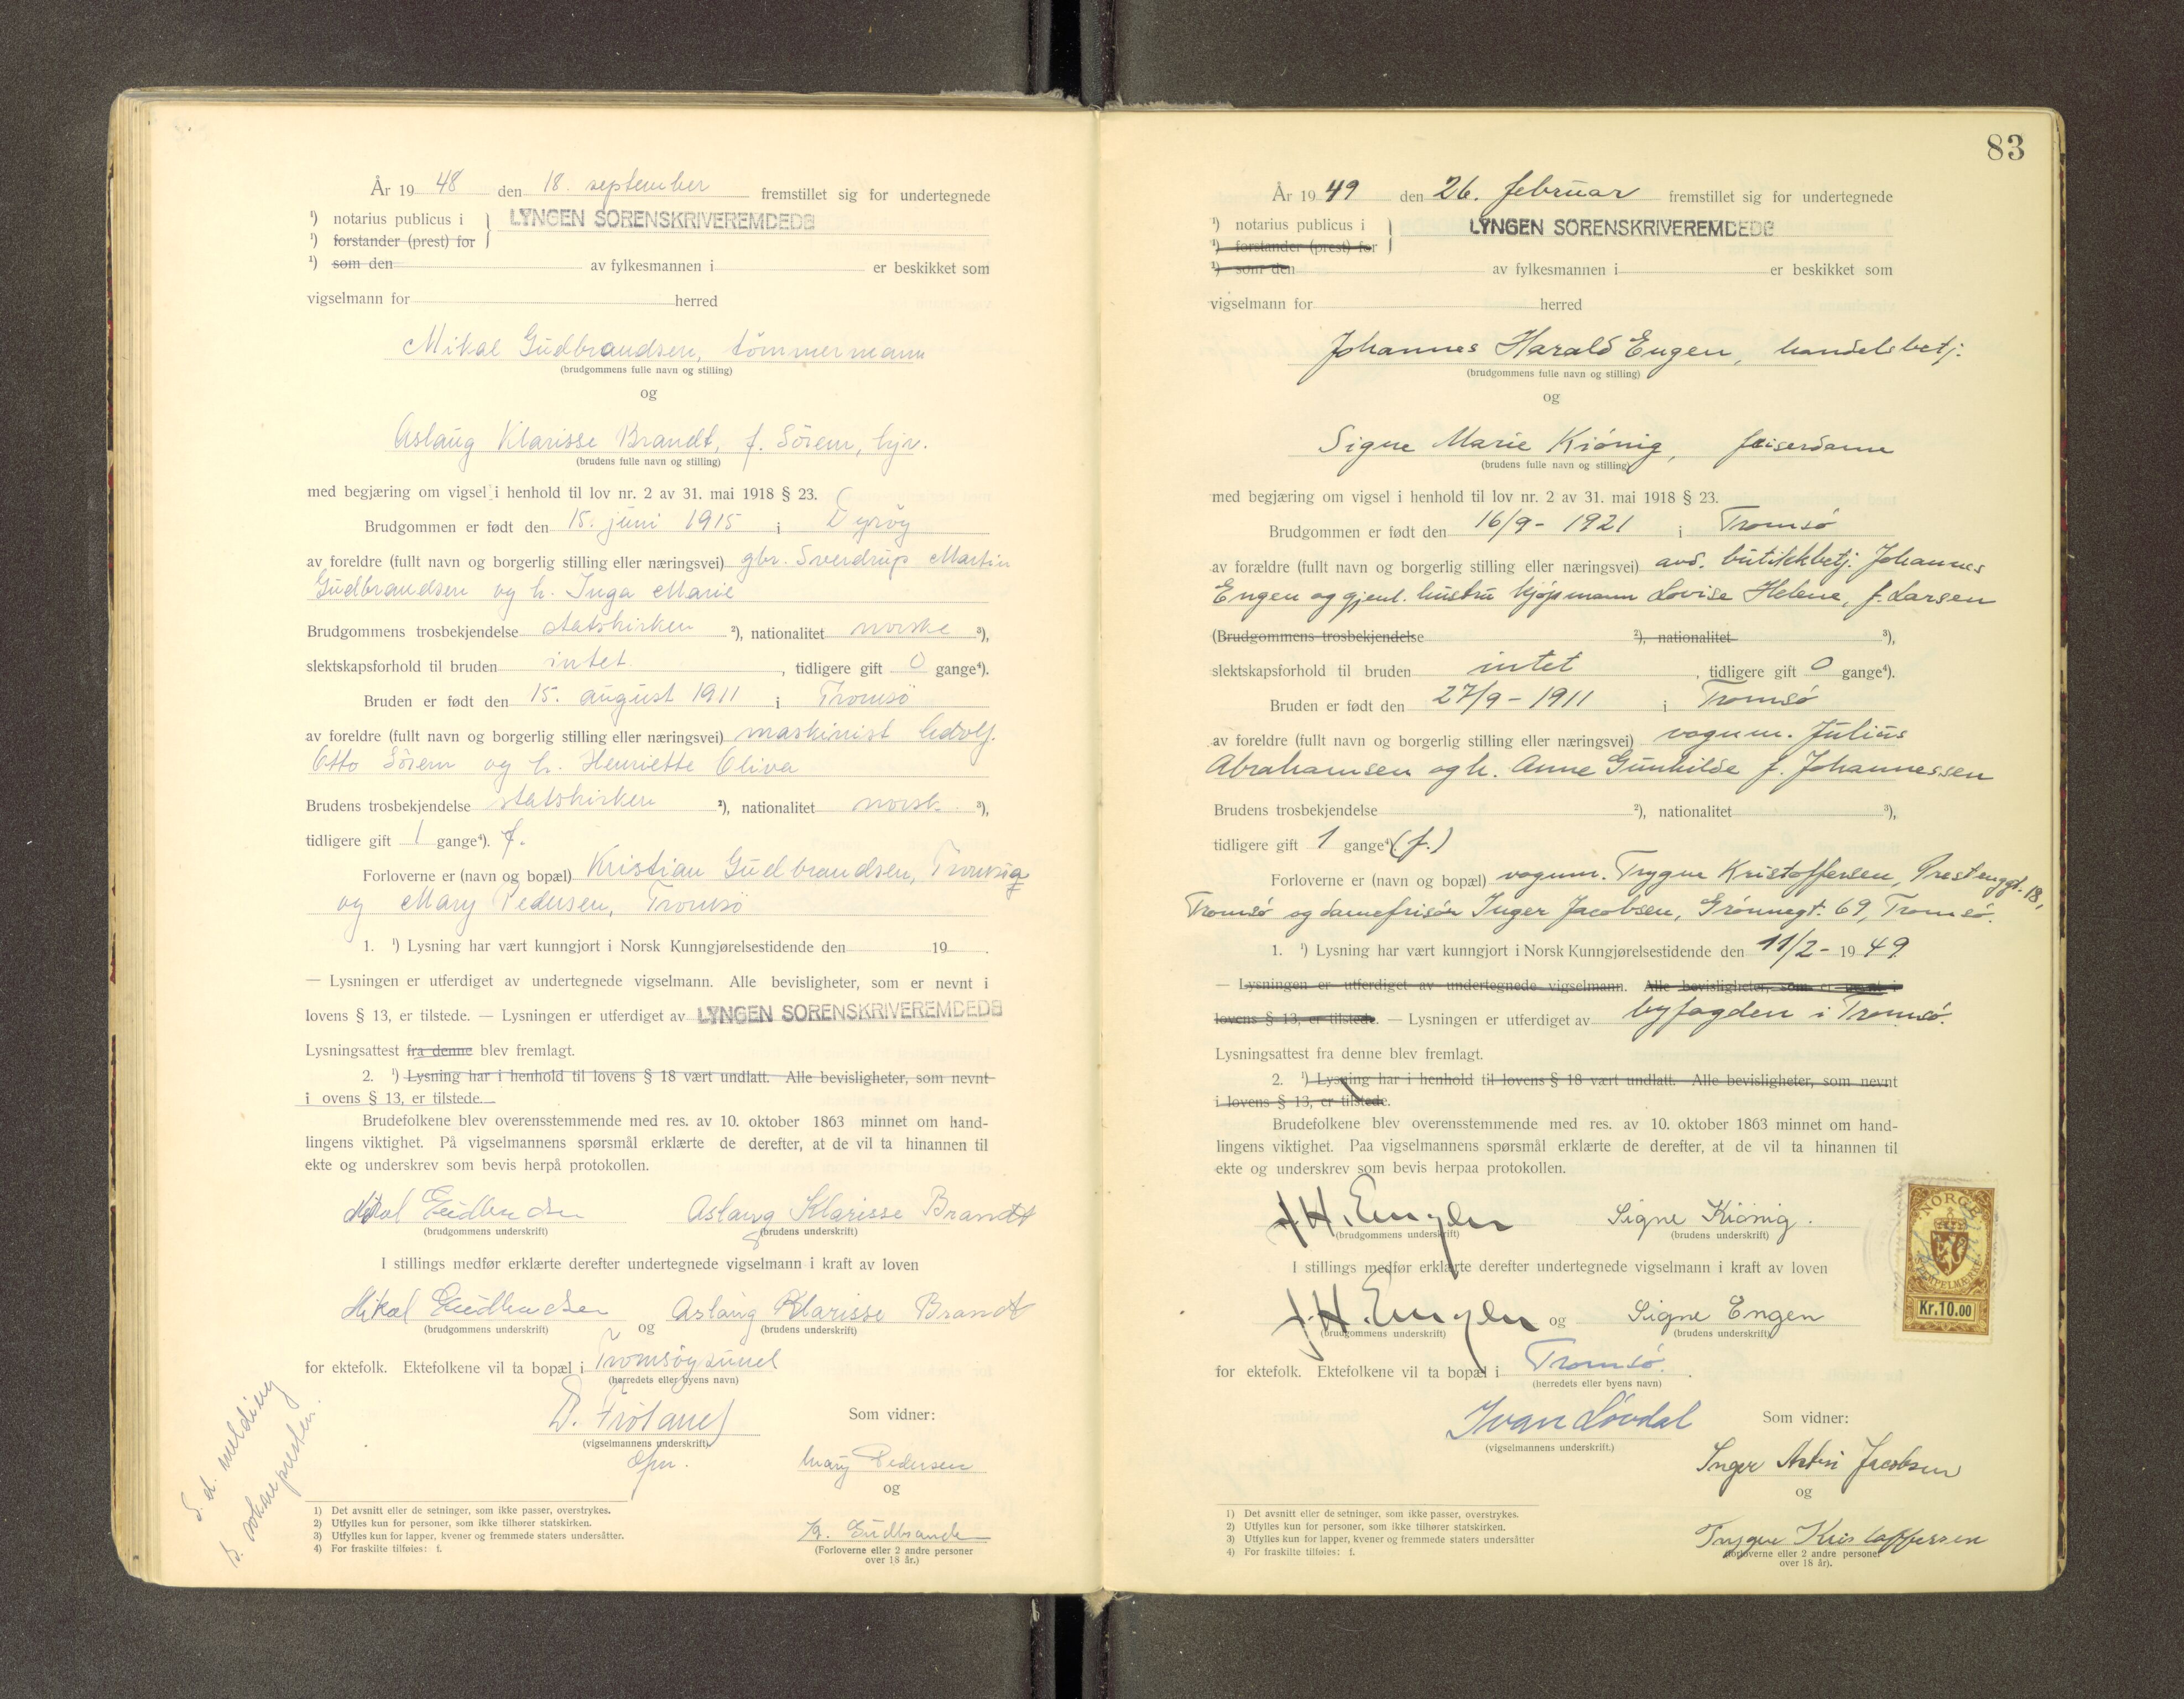 År 19 48 den 18. september fremstillet sig for undertegnede
¹) notarius publicus i } LYNGEN SORENSKRIVEREMBEDE
¹) forstander (prest) for
¹) som den av fylkesmannen i er beskikket som
vigselmann for herred
Mikal Gudbrandsen, tömmermann
(brudgommens fulle navn og stilling)
og
Aslaug Klarisse Brandt, f. Sörem, hjv.
(brudens fulle navn og stilling)
med begjæring om vigsel i henhold til lov nr. 2 av 31. mai 1918 § 23.
Brudgommen er født den 15. juni 1915 i Dyröy
av foreldre (fullt navn og borgerlig stilling eller næringsvei) gbr. Sverdrup Martin
Gudbrandsen og h. Inga Marie
Brudgommens trosbekjendelse statskirken ²), nationalitet norske ³),
slektskapsforhold til bruden intet, tidligere gift 0 gange⁴).
Bruden er født den 15. august 1911 i Tromsö
av foreldre (fullt navn og borgerlig stilling eller næringsvei) maskinist Adolf
Otto Sörem og h. Henriette Oliva
Brudens trosbekjendelse statskirken ²), nationalitet norsk. ³),
tidligere gift 1 gange⁴). f.
Forloverne er (navn og bopæl) Kristian Gudbrandsen,
og Mary Pedersen, Tromsö
1. ¹) Lysning har vært kunngjort i Norsk Kunngjørelsestidende den 19 .
— Lysningen er utferdiget av undertegnede vigselmann. Alle bevisligheter, som er nevnt i
lovens § 13, er tilstede. — Lysningen er utferdiget av LYNGEN SORENSKRIVEREMBEDE
Lysningsattest fra denne blev fremlagt.
2. ¹) Lysning har i henhold til lovens § 18 vært undlatt. Alle bevisligheter, som nevnt
i ovens § 13, er tilstede.
Brudefolkene blev overensstemmende med res. av 10. oktober 1863 minnet om hand-
lingens viktighet. På vigselmannens spørsmål erklærte de derefter, at de vil ta hinannen til
ekte og underskrev som bevis herpå protokollen.
Mikal Gudbrandsen Aslaug Klarisse Brandt
(brudgommens underskrift) (brudens underskrift)
I stillings medfør erklærte derefter undertegnede vigselmann i kraft av loven
Mikal Gudbrandsen og Aslaug Klarisse Brandt
(brudgommens underskrift) (brudens underskrift)
for ektefolk. Ektefolkene vil ta bopæl i Tromsöysund
(herredets eller byens navn)
Som vidner:
(vigselmannens underskrift)
Mary Pedersen
og
Kr. Gudbrandsen
(Forloverne eller 2 andre personer
over 18 år.)
S. d. melding
t. soknepresten.
1) Det avsnitt eller de setninger, som ikke passer, overstrykes.
2) Utfylles kun for personer, som ikke tilhører statskirken.
3) Utfylles kun for lapper, kvener og fremmede staters undersåtter.
4) For fraskilte tilføies: f.
83
År 19 49 den 26. februar fremstillet sig for undertegnede
¹) notarius publicus i } LYNGEN SORENSKRIVEREMBEDE
¹) forstander (prest) for
¹) som den av fylkesmannen i er beskikket som
vigselmann for herred
Johannes Harald Engen, handelsbetj.
(brudgommens fulle navn og stilling)
og
Signe Marie Kiönig, friserdame
(brudens fulle navn og stilling)
med begjæring om vigsel i henhold til lov nr. 2 av 31. mai 1918 § 23.
Brudgommen er født den 16/9 - 1921 i Tromsö
av forældre (fullt navn og borgerlig stilling eller næringsvei) avd. butikkbetj. Johannes
Engen og gjenl. hustru kjøpmann Lovise Helene, f. Larsen
(Brudgommens trosbekjendelse ²), nationalitet ³),
slektskapsforhold til bruden intet, tidligere gift 0 gange⁴).
Bruden er født den 27/9 - 1911 i Tromsö
av foreldre (fullt navn og borgerlig stilling eller næringsvei) vognm. Julius
Abrahamsen og h. Anne Gunhilde f. Johannessen
Brudens trosbekjendelse ²), nationalitet ³),
tidligere gift 1 gange⁴) (f.)
Forloverne er (navn og bopæl) vognm. Trygve Kristoffersen, Prestenggt. 18,
Tromsö og damefrisör Inger Jacobsen, Grönnegt. 69, Tromsö.
1. ¹) Lysning har vært kunngjort i Norsk Kunngjørelsestidende den 11/2 - 19 49
— Lysningen er utferdiget av undertegnede vigselmann. Alle bevisligheter, som er nevnt i
lovens § 13, er tilstede. — Lysningen er utferdiget av byfogden i Tromsö.
Lysningsattest fra denne blev fremlagt.
2. ¹) Lysning har i henhold til lovens § 18 vært undlatt. Alle bevisligheter, som nevnt
i lovens § 13, er tilstede.
Brudefolkene blev overensstemmende med res. av 10. oktober 1863 minnet om hand-
lingens viktighet. Paa vigselmannens spørsmål erklærte de derefter, at de vil ta hinannen til
ekte og underskrev som bevis herpaa protokollen.
J. H. Engen Signe Kiönig.
(brudgommens underskrift) (brudens underskrift)
NORGE
STEMPELMERKE
Kr. 10.00
I stillings medfør erklærte derefter undertegnede vigselmann i kraft av loven
J. H. Engen og Signe Engen
(brudgommens underskrift) (brudens underskrift)
for ektefolk. Ektefolkene vil ta bopæl i Tromsö.
(herredets eller byens navn)
Ivar Lövdal Som vidner:
(vigselmannens underskrift.)
Inger Jacobsen
og
Trygve Kristoffersen
(Forloverne eller 2 andre personer
over 18 år).
1) Det avsnitt eller de setninger, som ikke passer, overstrykes.
2) Utfylles kun for personer, som ikke tilhører statskirken.
3) Utfylles kun for lapper, kvener og fremmede staters undersåtter
4) For fraskilte tilføies: f.